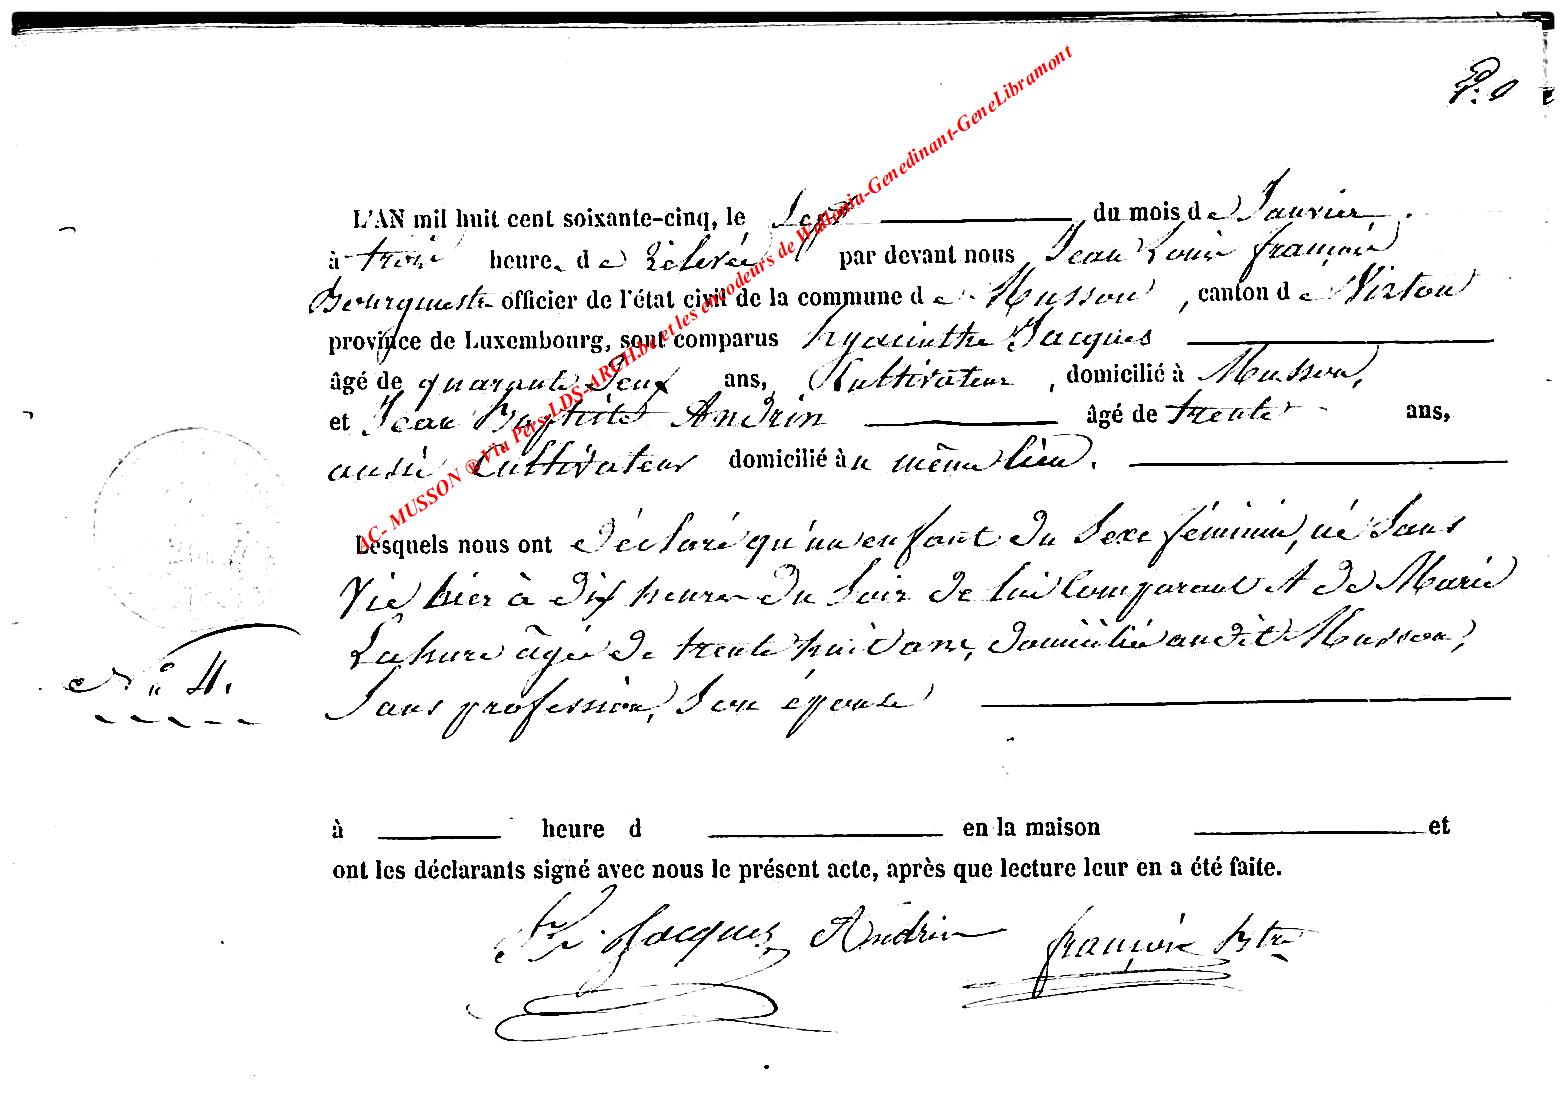 L'AN mil huit cent soixante-cinq, le Sept du mois de Janvier.
à trois heures de relevée par devant nous Jean Louis françois
Bourgmestre officier de l'état civil de la commune de Musson, canton de Virton
province de Luxembourg, sont comparus hyacinthe Jacques
âgé de quarante deux ans, Cultivateur, domicilié à Musson,
et Jean Baptiste Andrin âgé de trente ans,
aussi Cultivateur domicilié au même lieu.
Lesquels nous ont déclaré qu'un enfant du Sexe féminin, né Sans
Vie hier à dix heures du Soir de lui Comparant et de Marie
Lahure âgée de trente huit ans, domiciliée audit Musson,
Sans profession, Son épouse
N° 4.
à heure d en la maison et
ont les déclarants signé avec nous le présent acte, après que lecture leur en a été faite.
Jacques Andrin françois Bstre
AC- MUSSON ® Via Pers-LDS-ARCH.be et les encodeurs de Wallonia-Genedinant-GeneLibramont